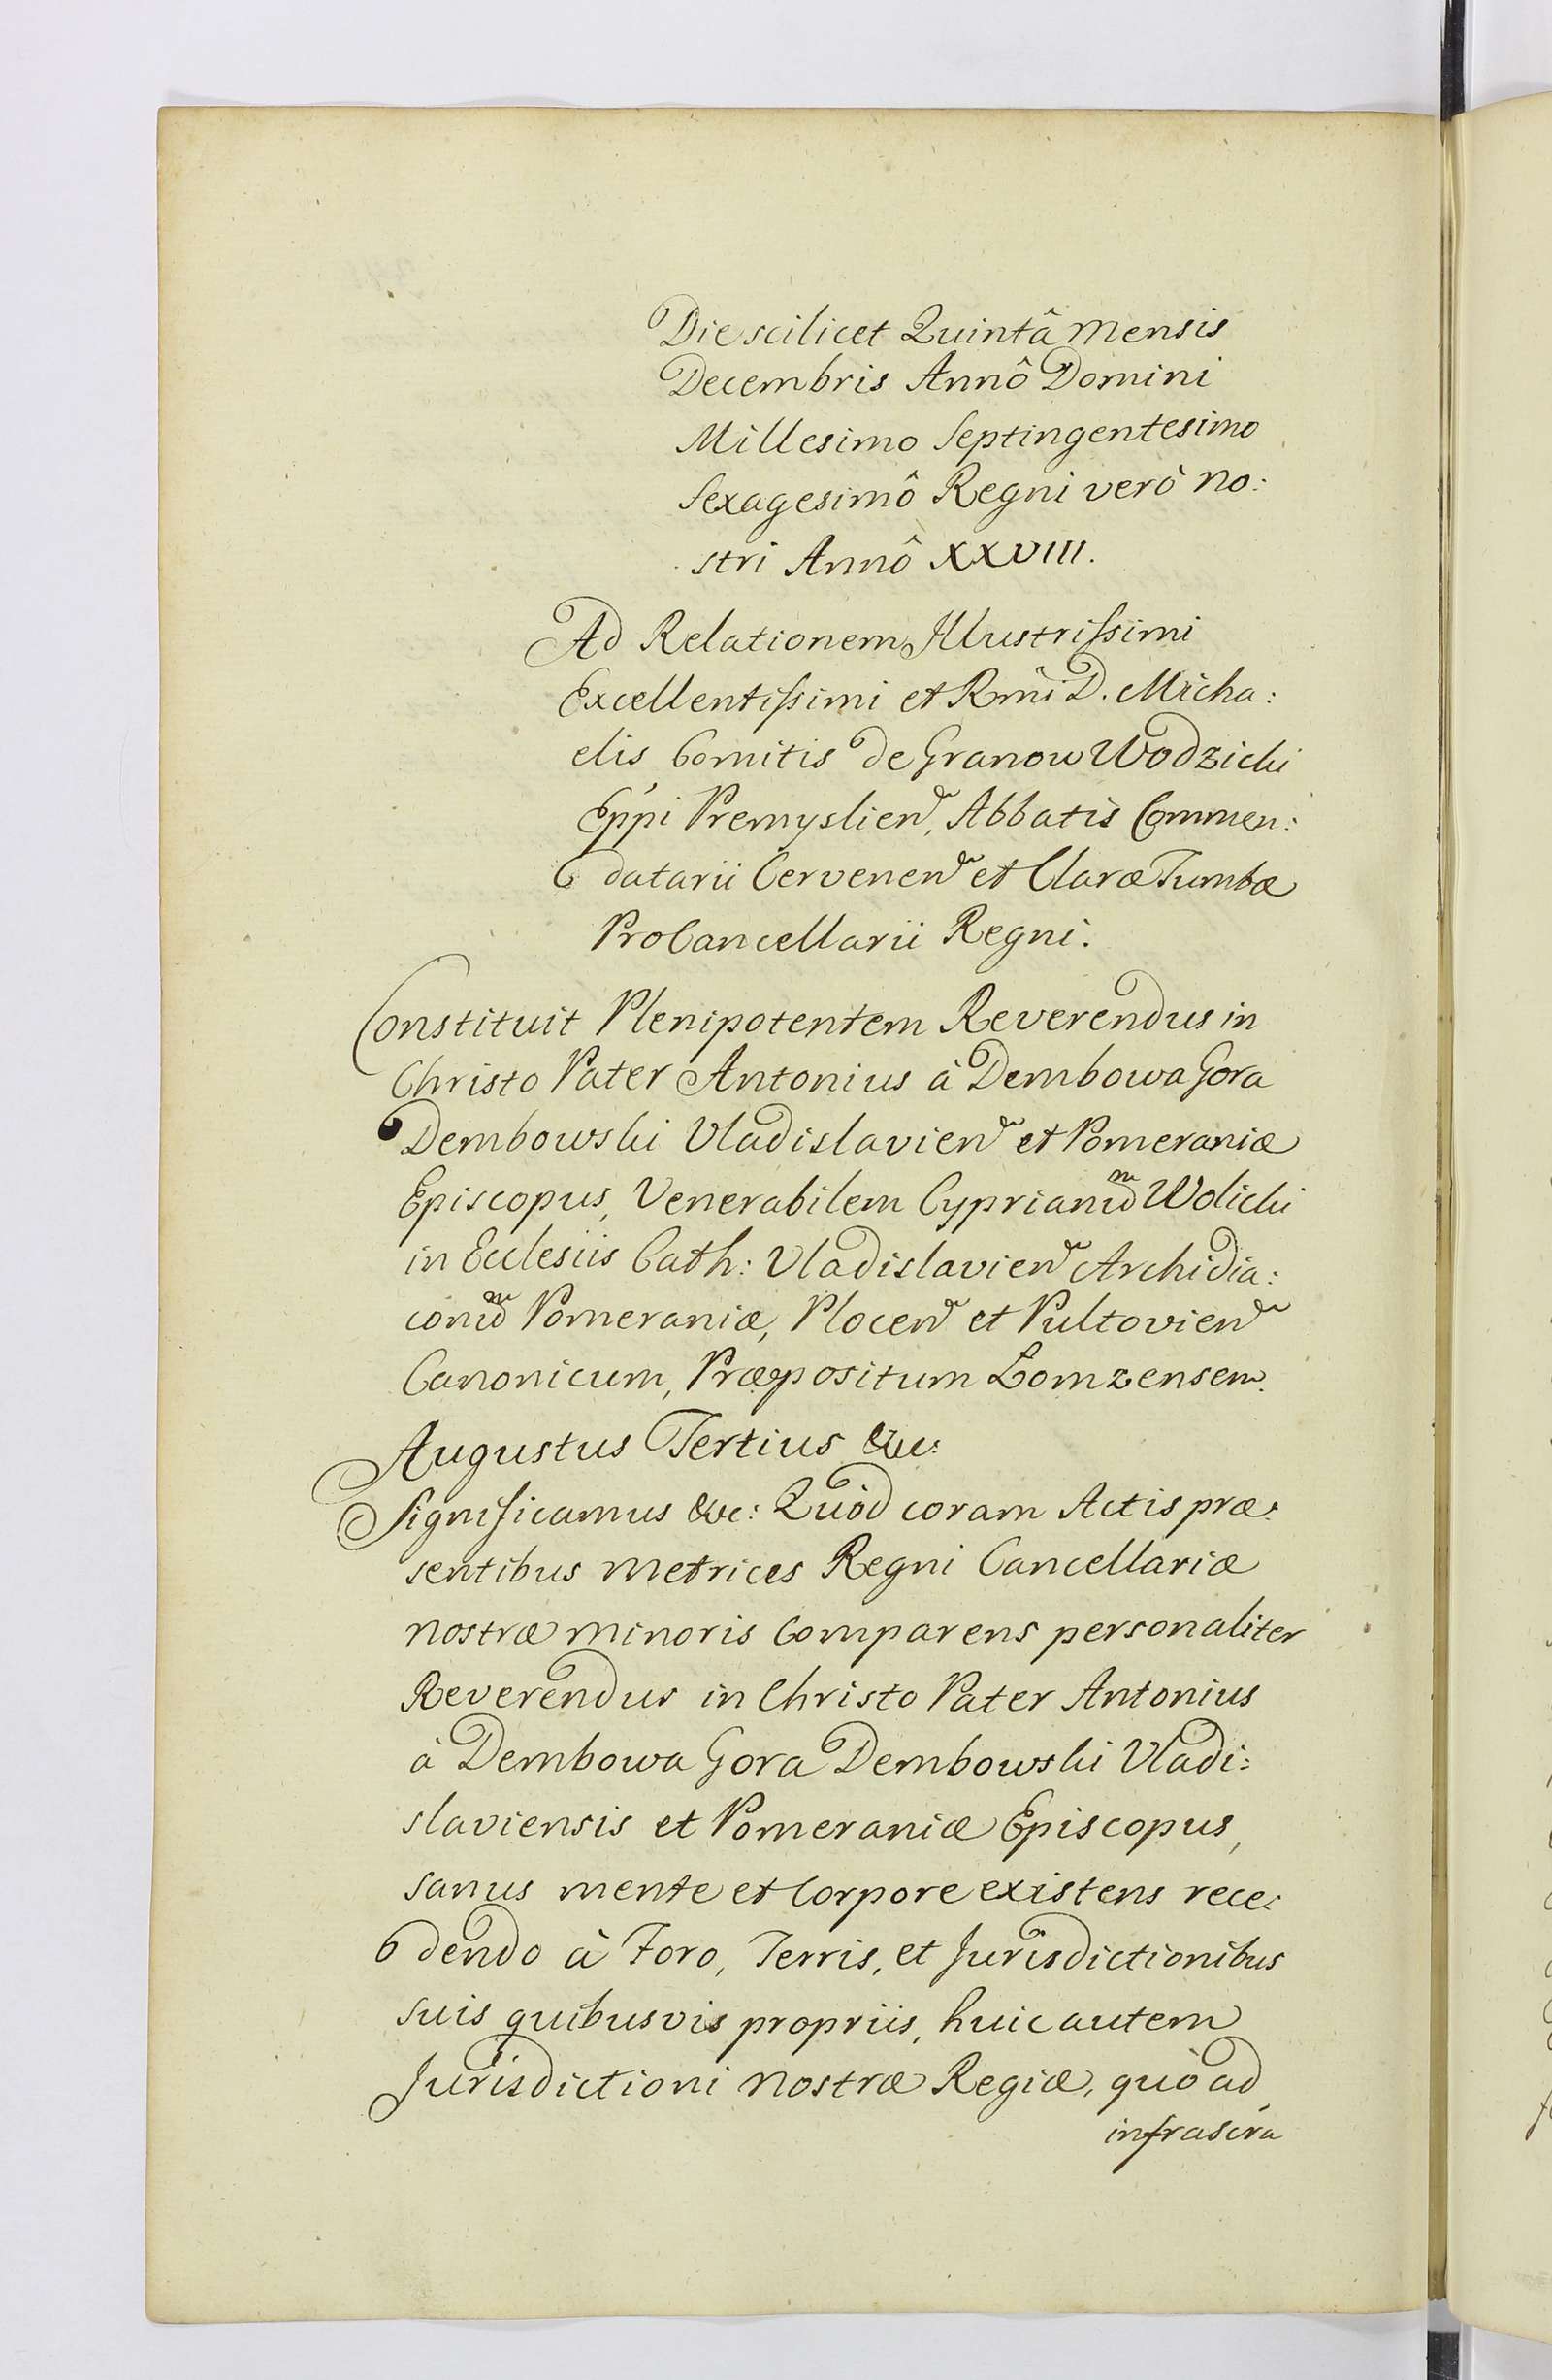 Die scilicet Quintâ mensis
Decembris Annô Domini
Millesimo Septingentesimo
Sexagesimô Regni verò no:
stri Annô XXVIII.
Ad Relationem Illustrissimi
Excellentissimi et Rmi D. Micha:
elis Comitis de Granow Wodzicki
Eppi Premyslien, Abbatis Commen:
datarii Cervenen et Claræ Tumbæ
ProCancellarii Regni.
Constituit Plenipotentem Reverendus in
Christo Pater Antonius à Dembowa Gora
Dembowski Vladislavien et Pomeraniæ
Episcopus, Venerabilem Cyprianum Wolicki
in Ecclesiis Cath: Vladislavien Archidia:
conum Pomeraniæ, Plocen et Pultovien
Canonicum, Præpositum Lomzensem.
Augustus Tertius &c:
Significamus &c: Quòd coram Actis præ:
sentibus Metrices Regni Cancellariæ
nostræ minoris Comparens personaliter
Reverendus in Christo Pater Antonius
à Dembowa Gora Dembowski Vladi:
slaviensis et Pomeraniæ Episcopus,
sanus mente et Corpore existens rece:
dendo à Foro, Terris, et Jurisdictionibus
suis quibusvis propriis, huic autem
Jurisdictioni nostræ Regiæ, quò ad
infrascra